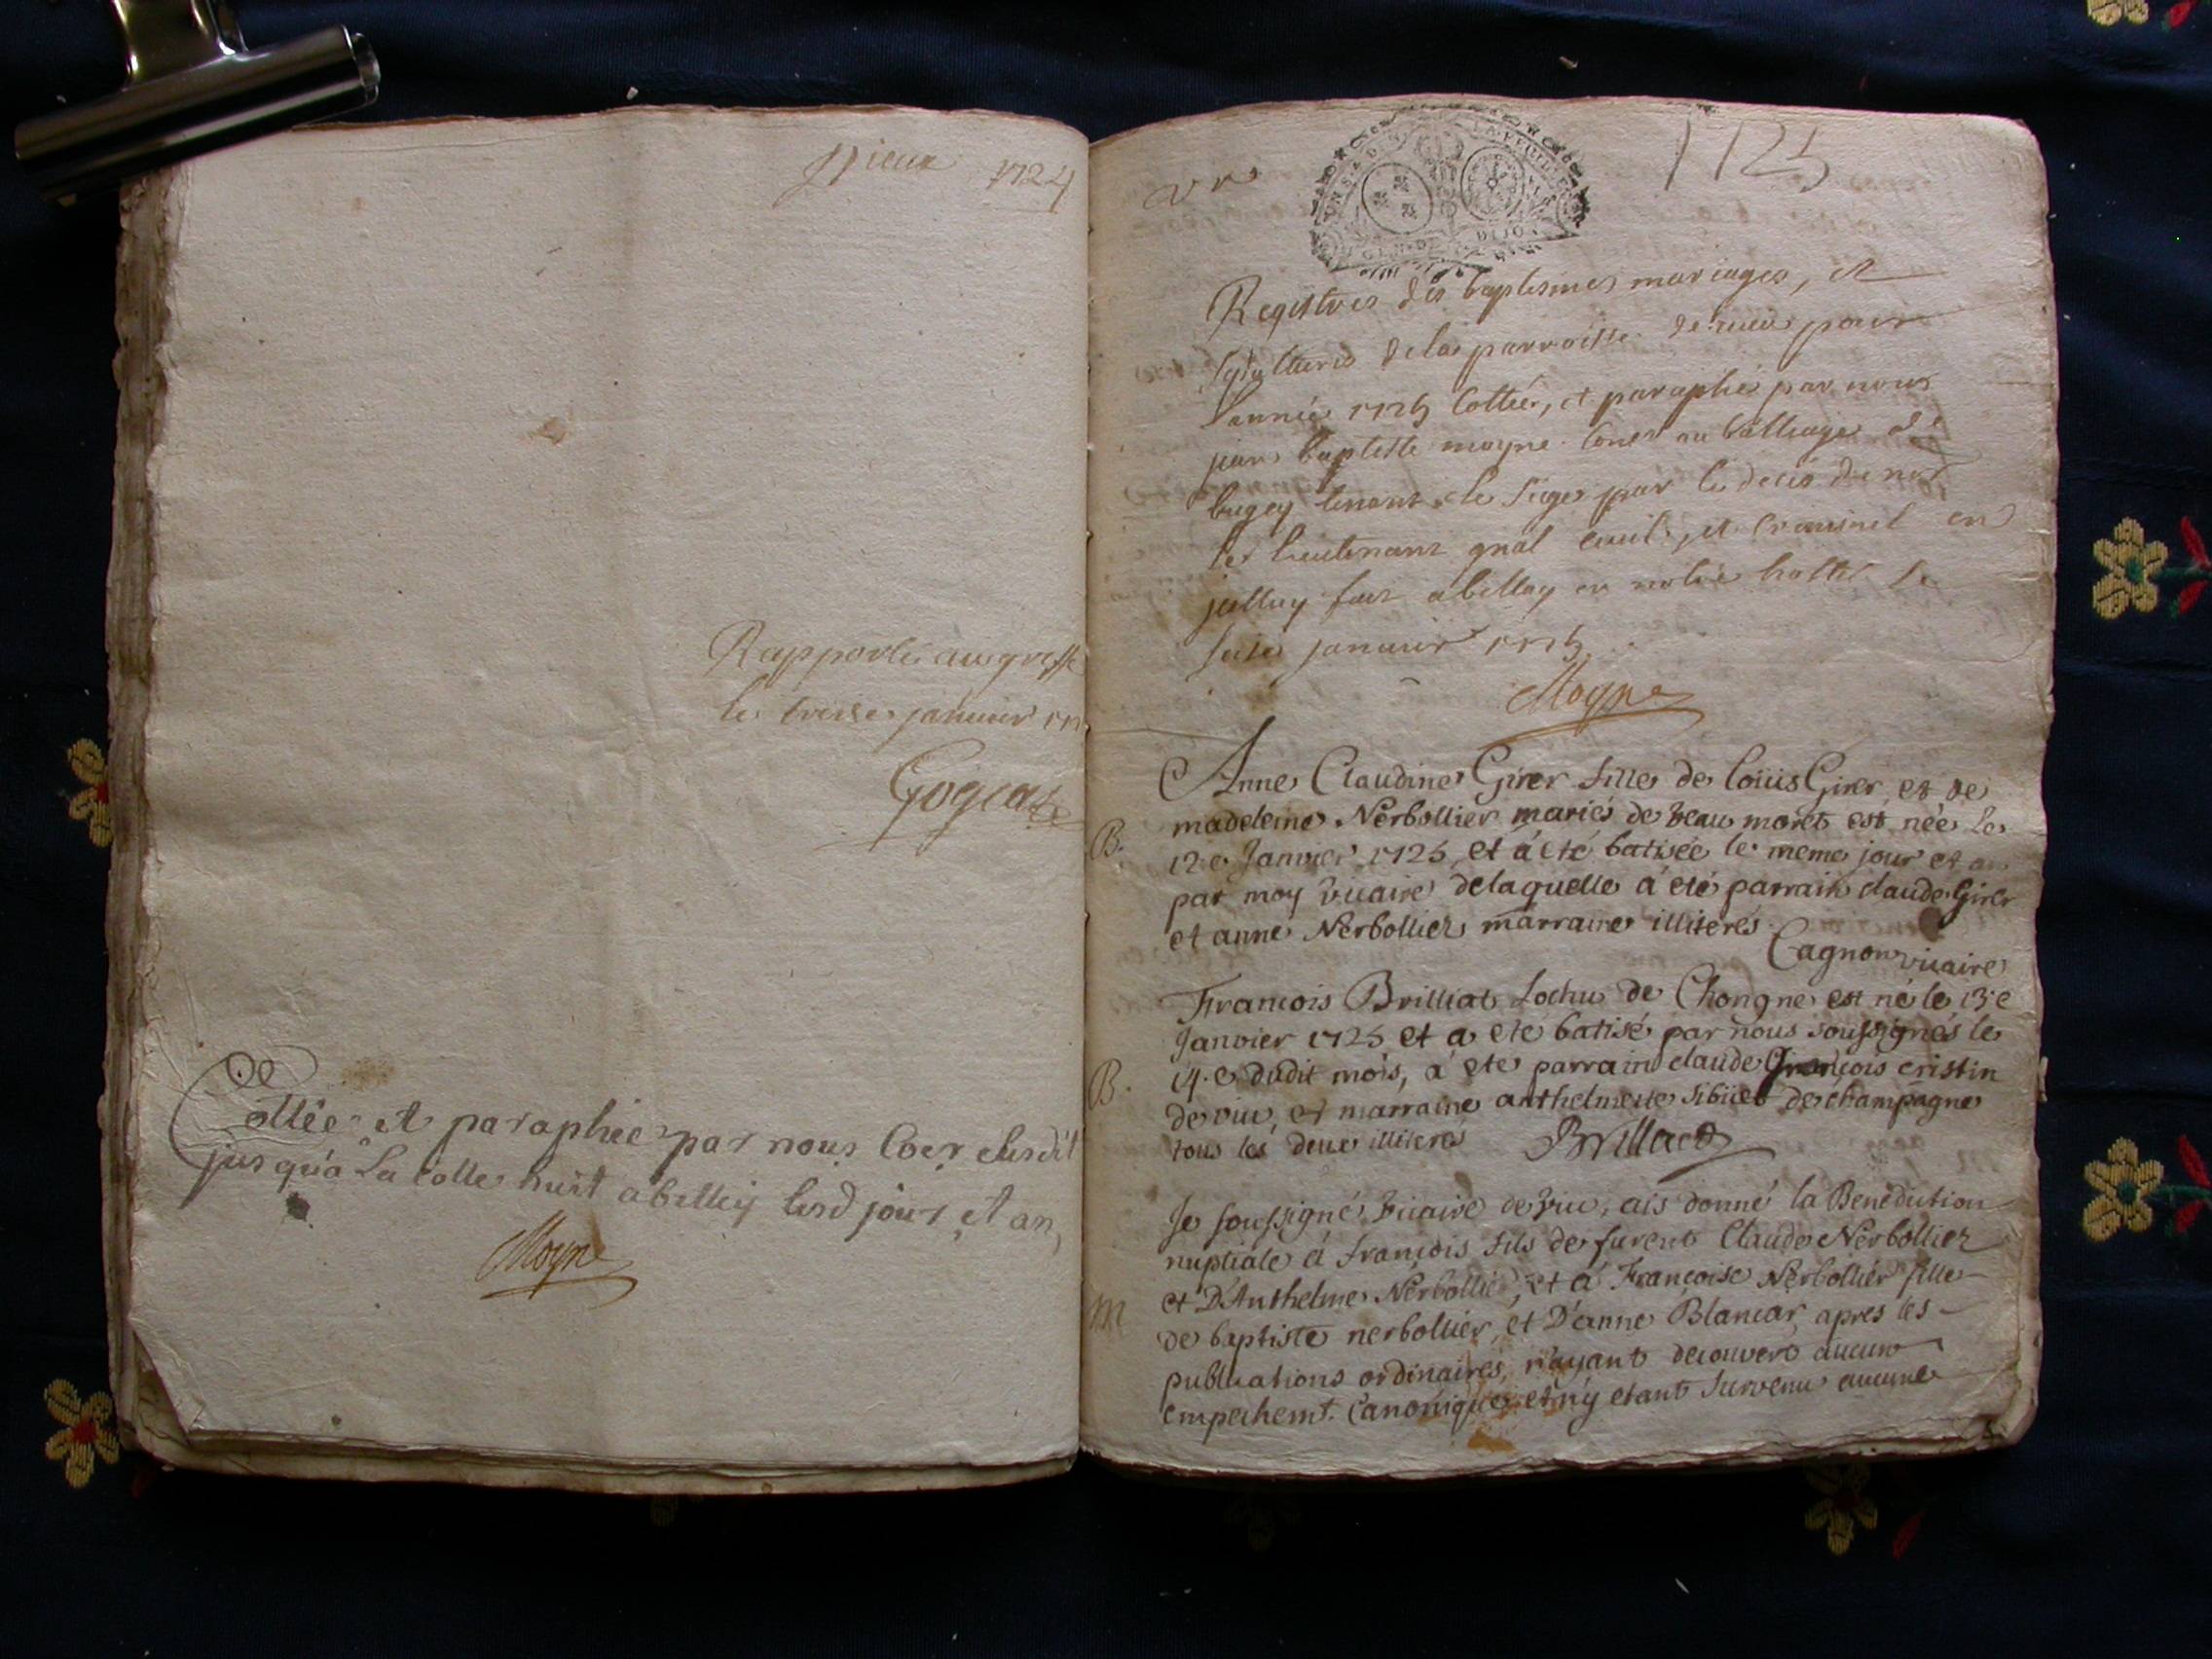 vieux 1724
Rapporté au greffe
le treize janvier 17
Gogeat
Cottée et paraphée par nous Coer susdit
jusqu'a La cotte huit a belley lesd jour et an
Moyne
1725
Registres des baptesmes mariages, et
sepultures de la parroisse de vieu pour
l'année 1725 Cottéé, et paraphé par nous
jean baptiste moyne Coner au balliage de
bugey tenant le siege par le deces de
le lieutenant gnal civil, et Criminel en
fait a belley en notre hostel le
seize janvier 1725
Moyne
B.
Anne Claudine Girer fille de Loüis Girer et de
madeleine Nerbollier mariés de beau moret est née Le
12e Janvier 1725, et a eté batisée le meme jour et an
par moy vicaire de laquelle a eté parrain claude Girer
et anne Nerbollier marraine illiteres
Cagnon vicaire
B.
Francois Brilliat de Chongne est né le 13e
Janvier 1725 et a eté batisé par nous soussignés le
14.e dudit mois, a eté parrain claude françois cristin
de viu, et marraine anthelmette sibuet de champagne
tous les deux illiterés Brillact
M
Je soussigné vicaire de viu, ais donné la Benediction
nuptiale a françois fils de furent Claude Nerbollier
et D'Anthelme Nerbollier, et a Françoise Nerbollier fille
de baptiste nerbollier, et D'anne Blancar, apres les
publications ordinaires, n'ayant decouvert aucun
empechemt. Canonique et n'y etant survenu aucune